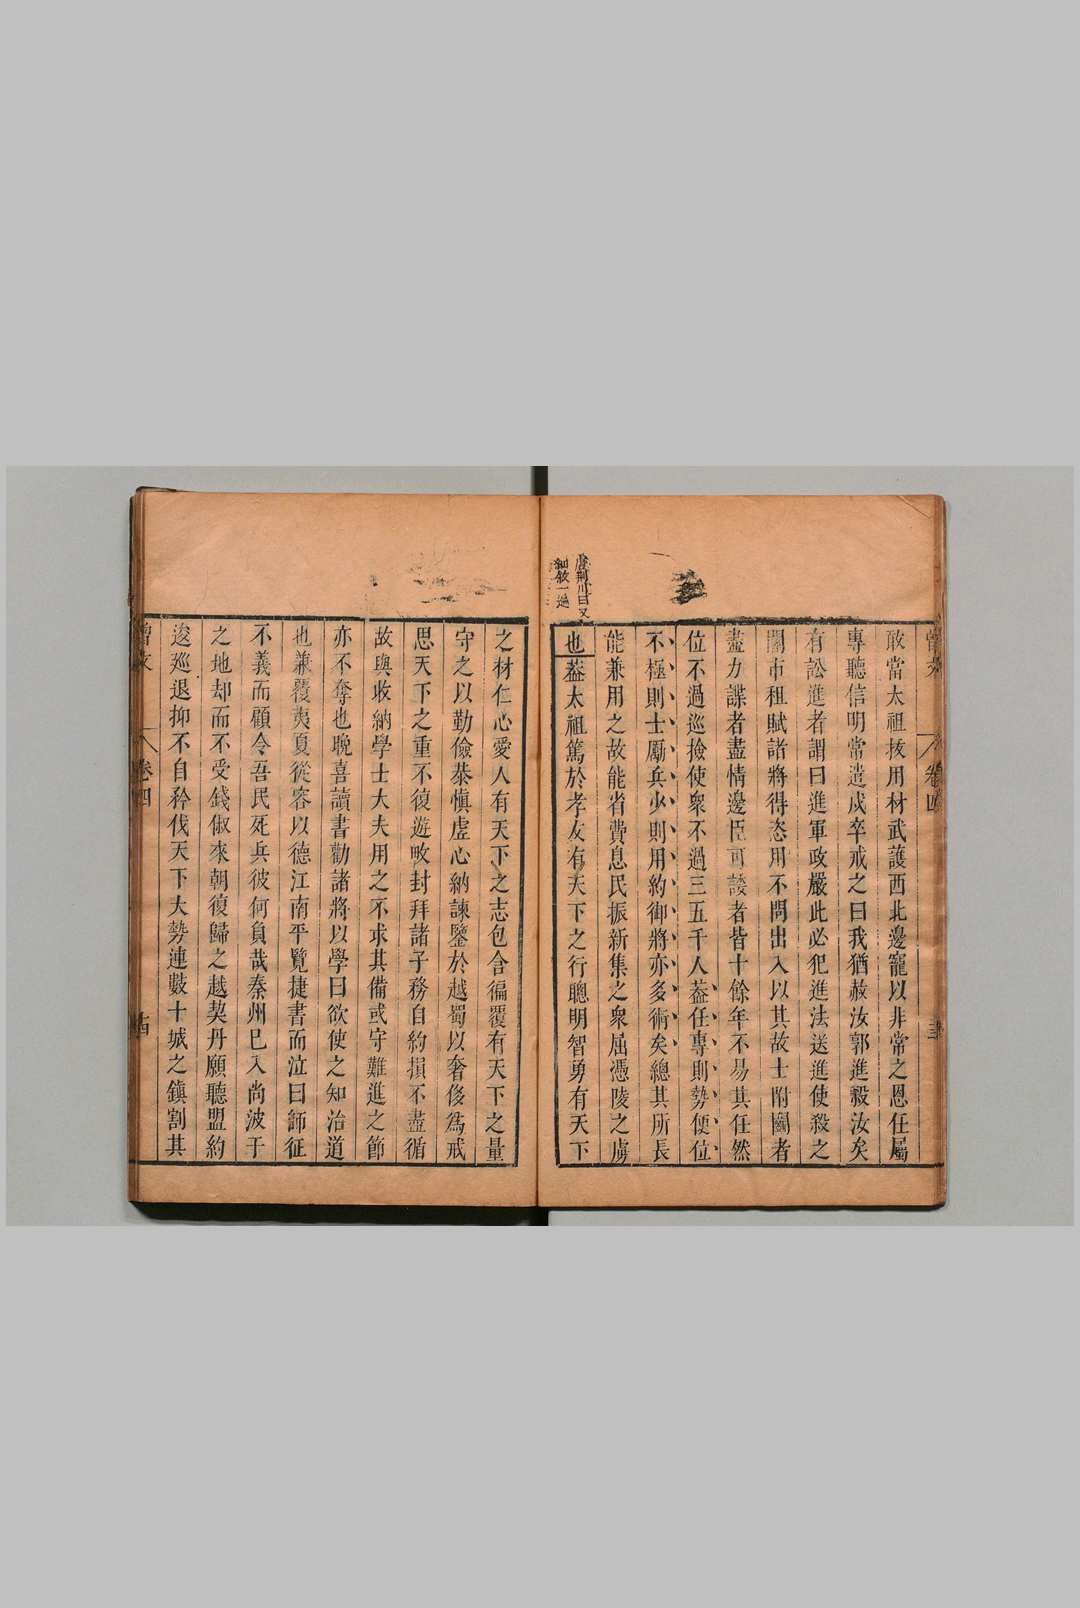 曾文
卷四
敢當太祖拔用材武護西北邊寵以非常之恩任屬
專聽信明常遣戍卒戒之曰我猶赦汝郭進殺汝矣
有訟進者謂曰進軍政嚴此必犯進法送進使殺之
關市租賦諸將得恣用不問出入以其故士附關者
盡力諜者盡情邊臣可諉者皆十餘年不易其任然
位不過巡撿使衆不過三五千人葢任專則勢便位
不極則士勵兵少則用約御將亦多術矣總其所長
能兼用之故能省費息民振新集之衆屈憑陵之虜
唐荆川曰又
細敘一過
也葢太祖篤於孝友有天下之行聰明智勇有天下
之材仁心愛人有天下之志包含徧覆有天下之量
守之以勤儉恭愼虛心納諫鑒於越蜀以奢侈爲戒
思天下之重不復遊畋封拜諸子務自約損不盡循
故與收納學士大夫用之不求其備或守難進之節
亦不奪也晚喜讀書勸諸將以學曰欲使之知治道
也兼覆夷夏從容以德江南平覽捷書而泣曰師征
不義而顧令吾民死兵彼何負哉秦州已入尚波于
之地却而不受錢俶來朝復歸之越契丹願聽盟約
逡巡退抑不自矜伐天下大勢連數十城之鎭割其
曾文
卷四